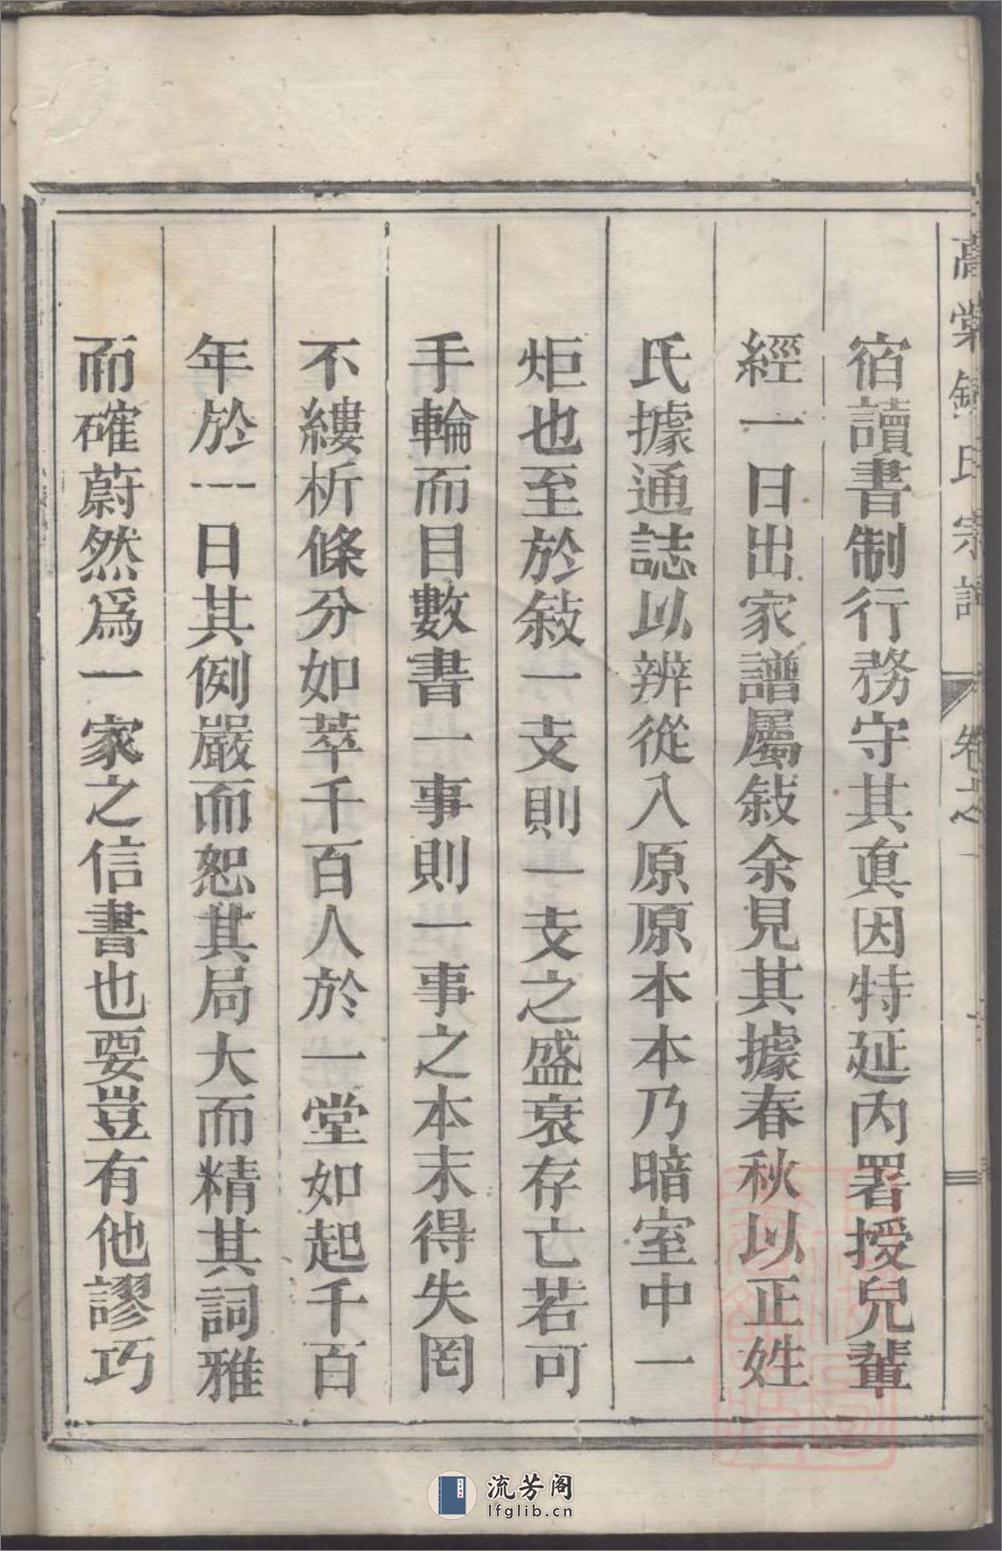 宿讀書制行務守其眞因特延內署授兒輩
經一日出家譜屬敍余見其據春秋以正姓
氏據通誌以辨從入原原本本乃暗室中一
炬也至於敍一支則一支之盛衰存亡若可
手輪而目數書一事則一事之本末得失罔
不縷析條分如萃千百人於一堂如起千百
年於一日其例嚴而恕其局大而精其詞雅
而確蔚然爲一家之信書也要豈有他謬巧
氏宗譜
卷之
流芳阁
lfglib.cn